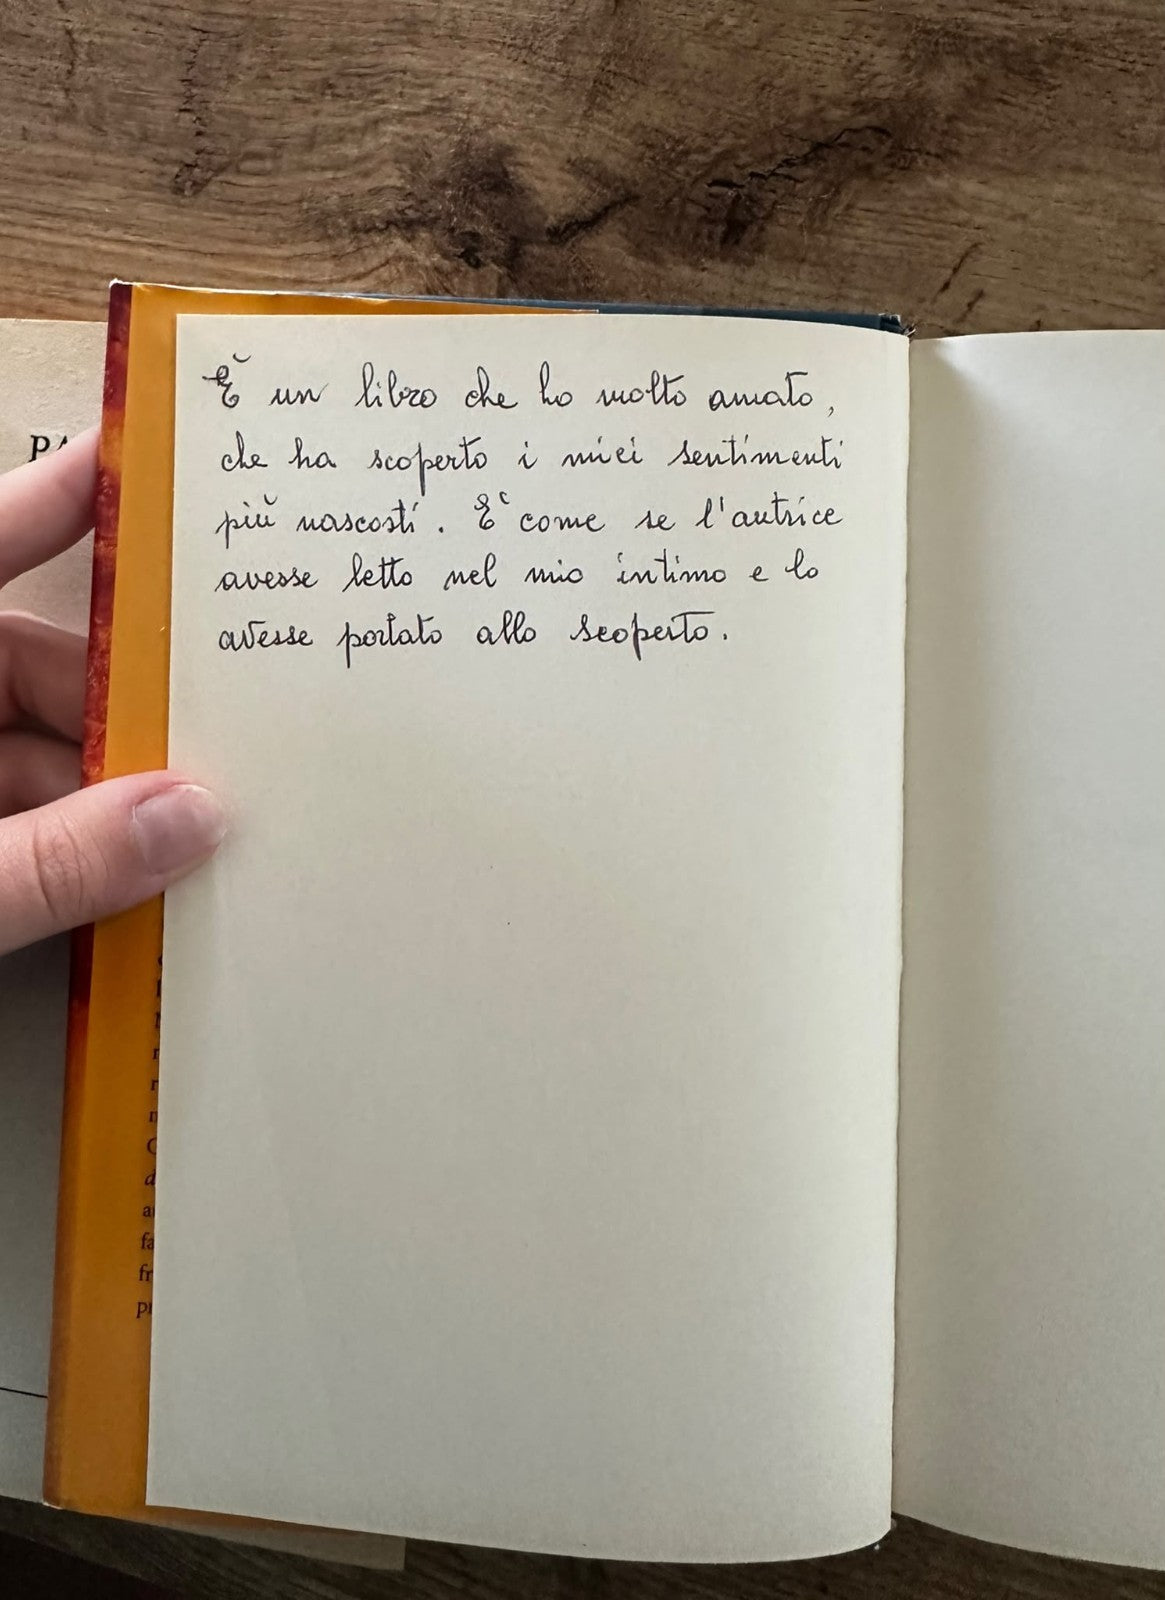 È un libro che ho molto amato,
che ha scoperto i miei sentimenti
più nascosti. È come se l'autrice
avesse letto nel mio intimo e lo
avesse portato allo scoperto.
PA
fa
fr